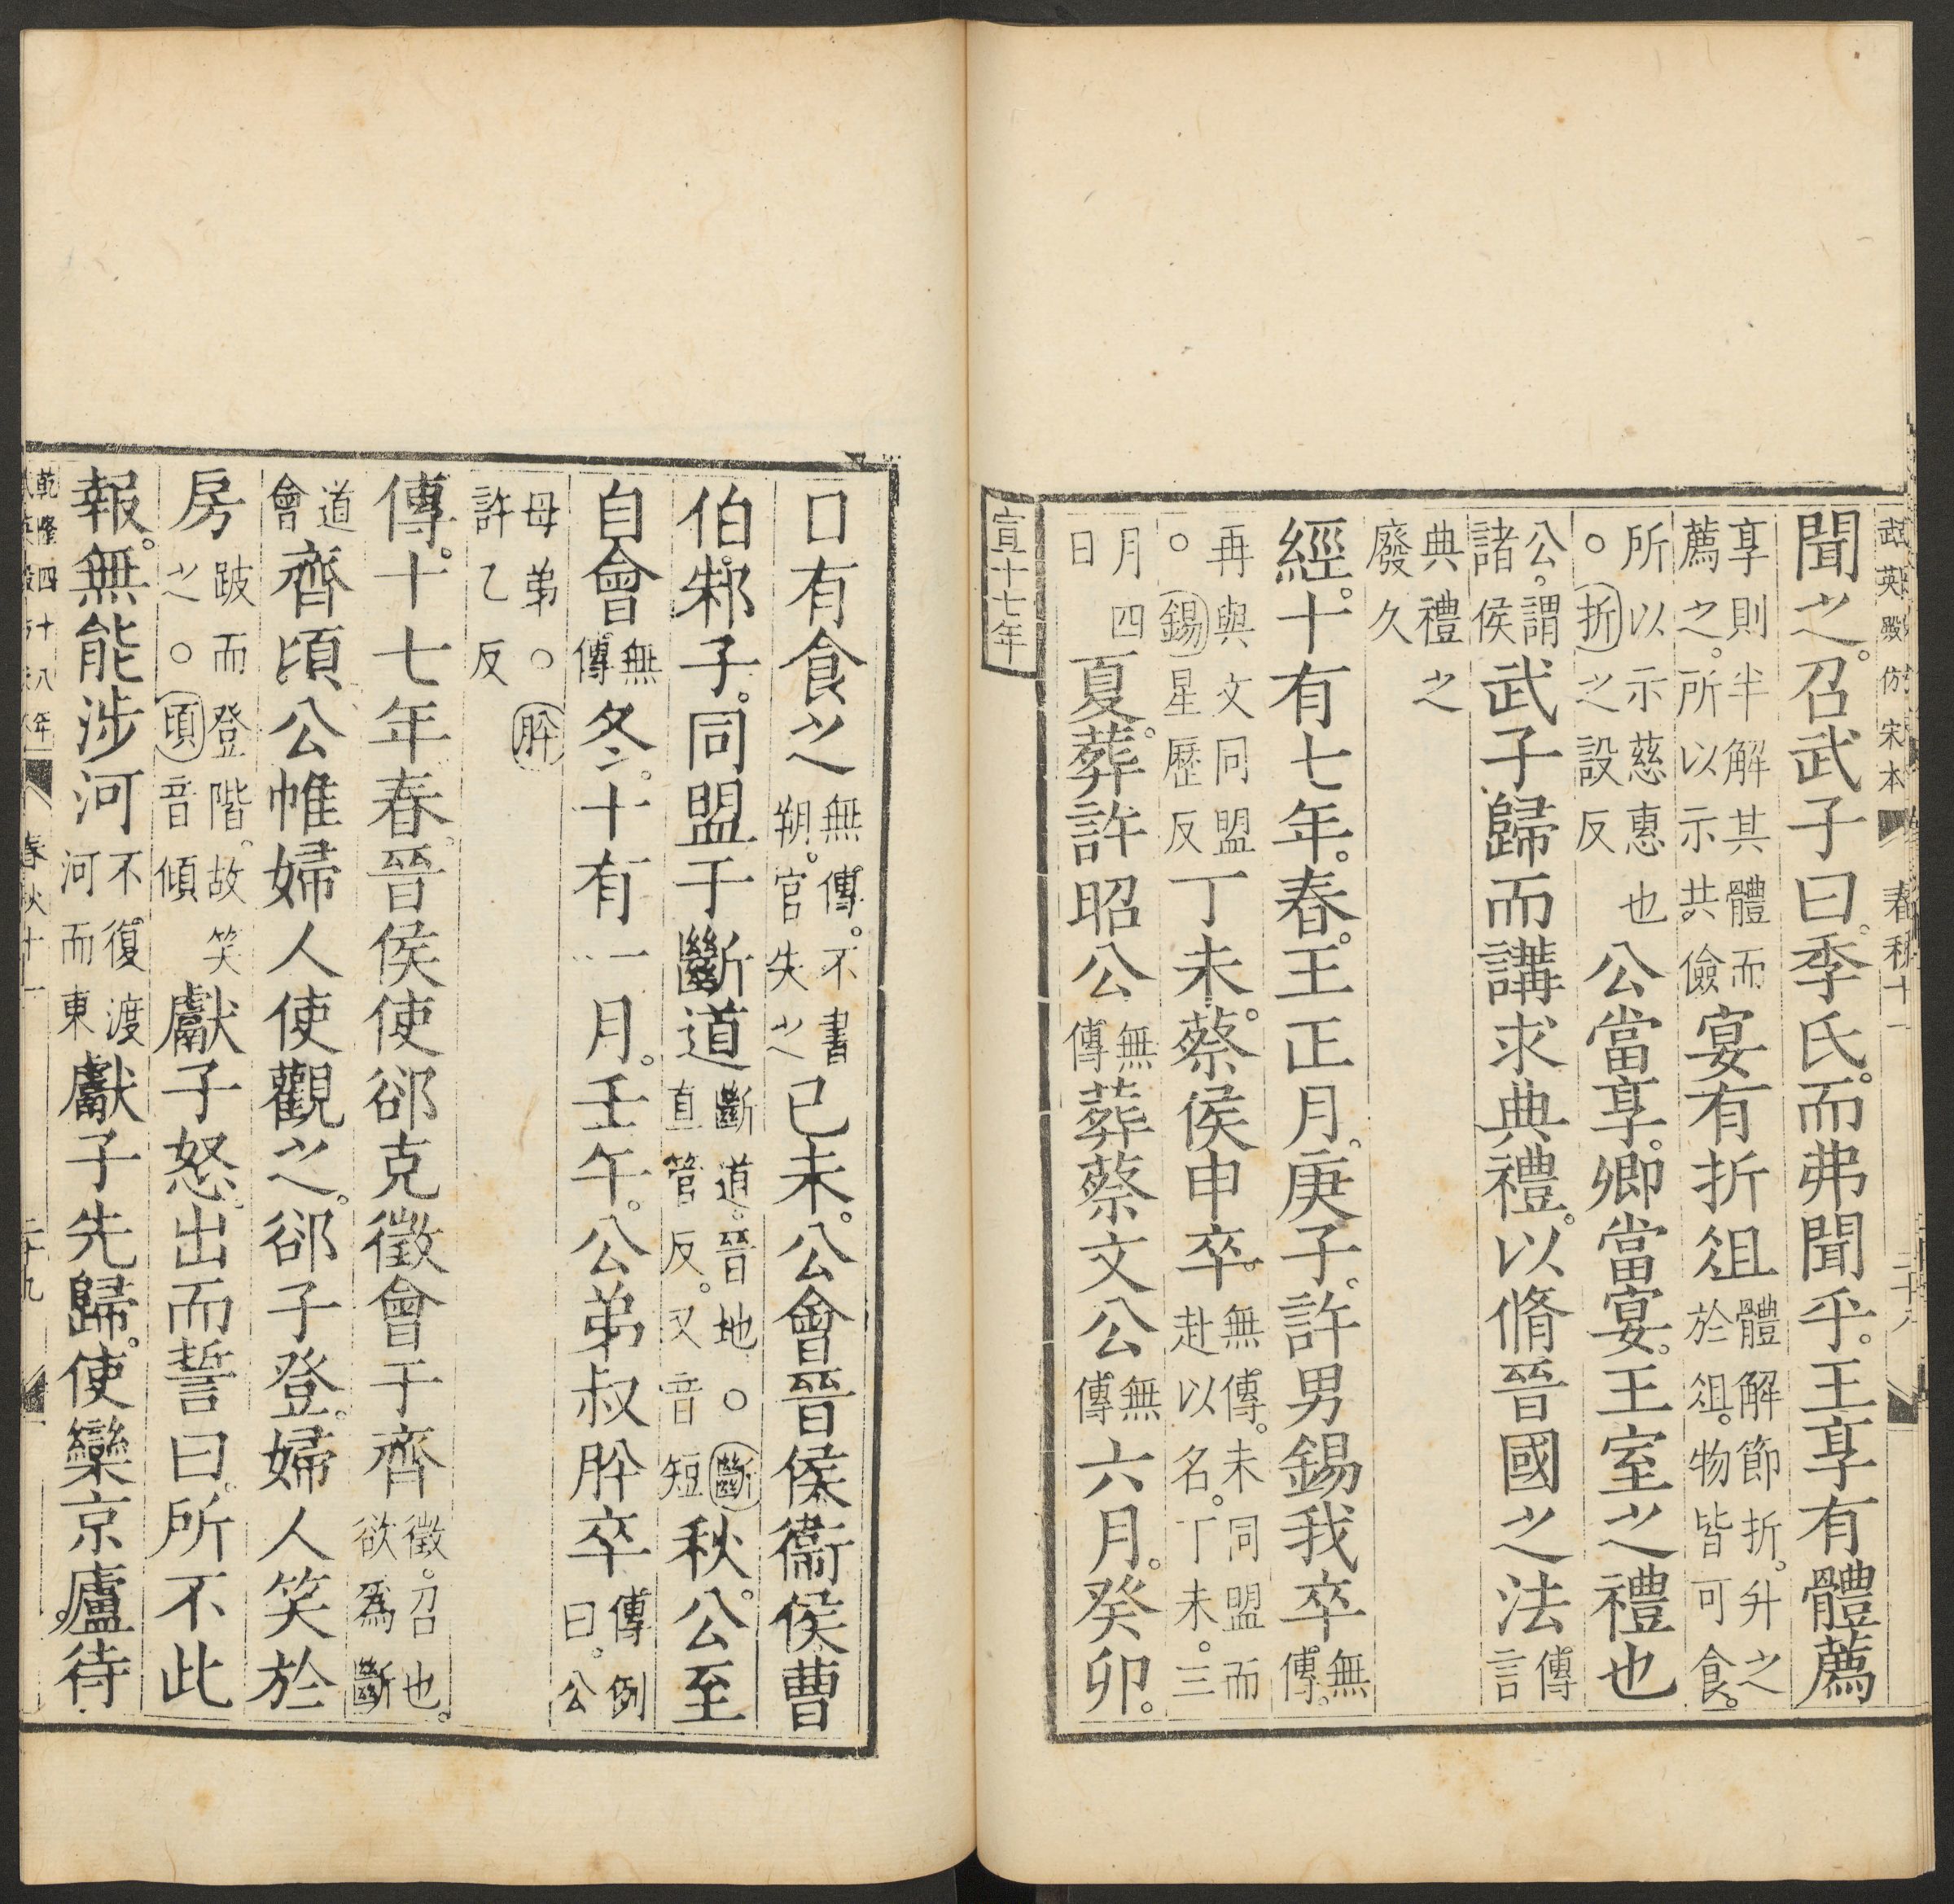 武英殿仿宋本 春秋十一 二十八
聞之。召武子曰。季氏。而弗聞乎。王享有體薦
享則半解其體而薦之。所以示共儉宴有折俎體解節折。升之於俎。物皆可食。
所以示慈惠也○折之設反公當享。卿當宴。王室之禮也
公。謂諸侯武子歸而講求典禮。以脩晉國之法傳言
典禮之廢久
經。十有七年。春。王正月。庚子。許男錫我卒無傳。
再與文同盟○錫星歷反丁未。蔡侯申卒。無傳。未同盟而赴以名。丁未。三
月四日夏。葬許昭公無傳葬蔡文公無傳六月。癸卯。
宣十七年
日有食之無傳。不書朔。官失之己未。公會晉侯衞侯曹
伯邾子。同盟于斷道斷道。晉地○斷直管反。又音短秋。公至
自會無傳冬。十有一月。壬午。公弟叔肸卒傳例曰。公
母弟○肸許乙反
傳。十七年春。晉侯使郤克徵會于齊徵。召也。欲爲斷
道會齊頃公帷婦人使觀之。郤子登。婦人笑於
房跛而登階。故笑之○頃音傾獻子怒。出而誓曰。所不此
報。無能涉河不復渡河而東獻子先歸。使欒京廬。待
乾隆四十八年 春秋十一 二十九